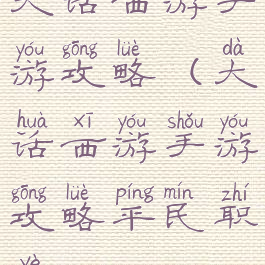 大话西游手
yóu gōng lüè dà
游攻略（大
huà xī yóu shǒu yóu
话西游手游
gōng lüè píng mín zhí
攻略平民职
yè